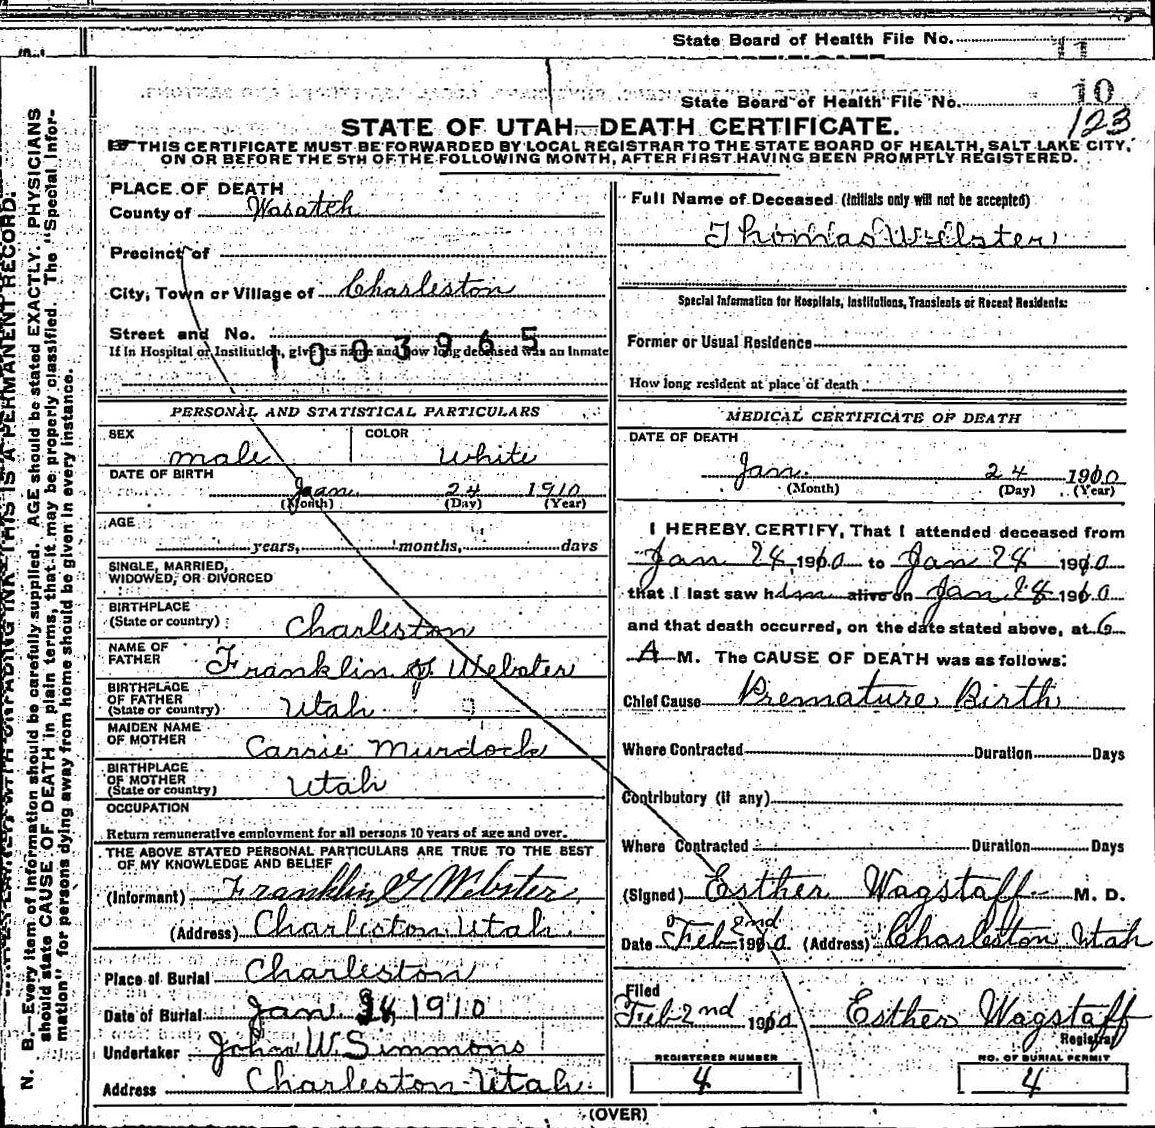 State Board of Health File No. 11
State Board of Health File No. 10
123
STATE OF UTAH—DEATH CERTIFICATE.
THIS CERTIFICATE MUST BE FORWARDED BY LOCAL REGISTRAR TO THE STATE BOARD OF HEALTH, SALT LAKE CITY,
ON OR BEFORE THE 5TH OF THE FOLLOWING MONTH, AFTER FIRST HAVING BEEN PROMPTLY REGISTERED.
PLACE OF DEATH
County of Wasatch
Precinct of
City, Town or Village of Charleston
Street and No.
1003965
If in Hospital or Institution, give its name and how long deceased was an inmate
PERSONAL AND STATISTICAL PARTICULARS
SEX male
COLOR White
DATE OF BIRTH
Jan. 24 1910
(Month) (Day) (Year)
AGE
years, months, days
SINGLE, MARRIED,
WIDOWED, OR DIVORCED
BIRTHPLACE
(State or country) Charleston
NAME OF
FATHER Franklin J. Webster
BIRTHPLACE
OF FATHER
(State or country) Utah
MAIDEN NAME
OF MOTHER Carrie Murdock
BIRTHPLACE
OF MOTHER
(State or country) Utah
OCCUPATION
Return remunerative employment for all persons 10 years of age and over.
THE ABOVE STATED PERSONAL PARTICULARS ARE TRUE TO THE BEST
OF MY KNOWLEDGE AND BELIEF
(Informant) Franklin Webster
(Address) Charleston Utah.
Place of Burial Charleston
Date of Burial Jan 24, 1910
Undertaker John W. Simmons
Address Charleston Utah.
Full Name of Deceased (Initials only will not be accepted)
Thomas Webster
Special Information for Hospitals, Institutions, Transients or Recent Residents:
Former or Usual Residence
How long resident at place of death
MEDICAL CERTIFICATE OF DEATH
DATE OF DEATH
Jan. 24 1910
(Month) (Day) (Year)
I HEREBY CERTIFY, That I attended deceased from
Jan 24 1910 to Jan 24 1910
that I last saw him alive on Jan 24 1910
and that death occurred, on the date stated above, at 6
A M. The CAUSE OF DEATH was as follows:
Chief Cause Premature Birth
Where Contracted Duration Days
Contributory (if any)
Where Contracted Duration Days
(Signed) Esther Wagstaff M. D.
Date Feb 2nd 1910. (Address) Charleston Utah
Filed
Feb 2nd 1910 Esther Wagstaff
Registrar
REGISTERED NUMBER
4
NO. OF BURIAL PERMIT
4
(OVER)
N. B.—Every item of information should be carefully supplied. AGE should be stated EXACTLY. PHYSICIANS
should state CAUSE OF DEATH in plain terms, that it may be properly classified. The "Special Infor-
mation" for persons dying away from home should be given in every instance.